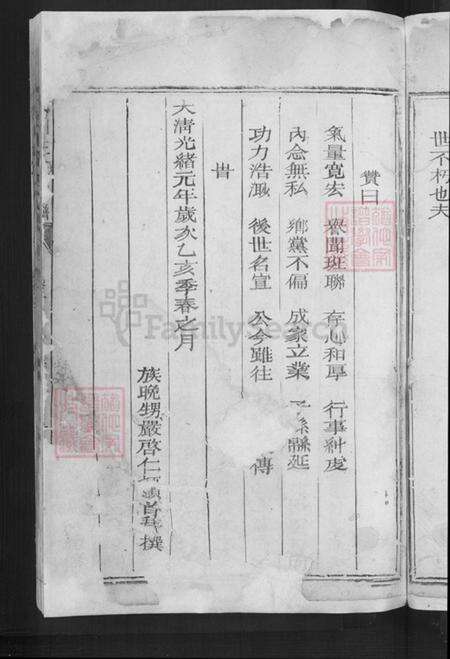 世不朽也夫
贊曰
氣量寬宏 聲聞班聯 存心和厚 行事糾虔
內念無私 鄉黨不偏 成家立業 孫綿延
功力浩瀚 後世名宣 公今雖往 傳
旹
大清光緒元年歲次乙亥季春之月
族晚甥嚴啓仁頓首拜撰
FamilySearch